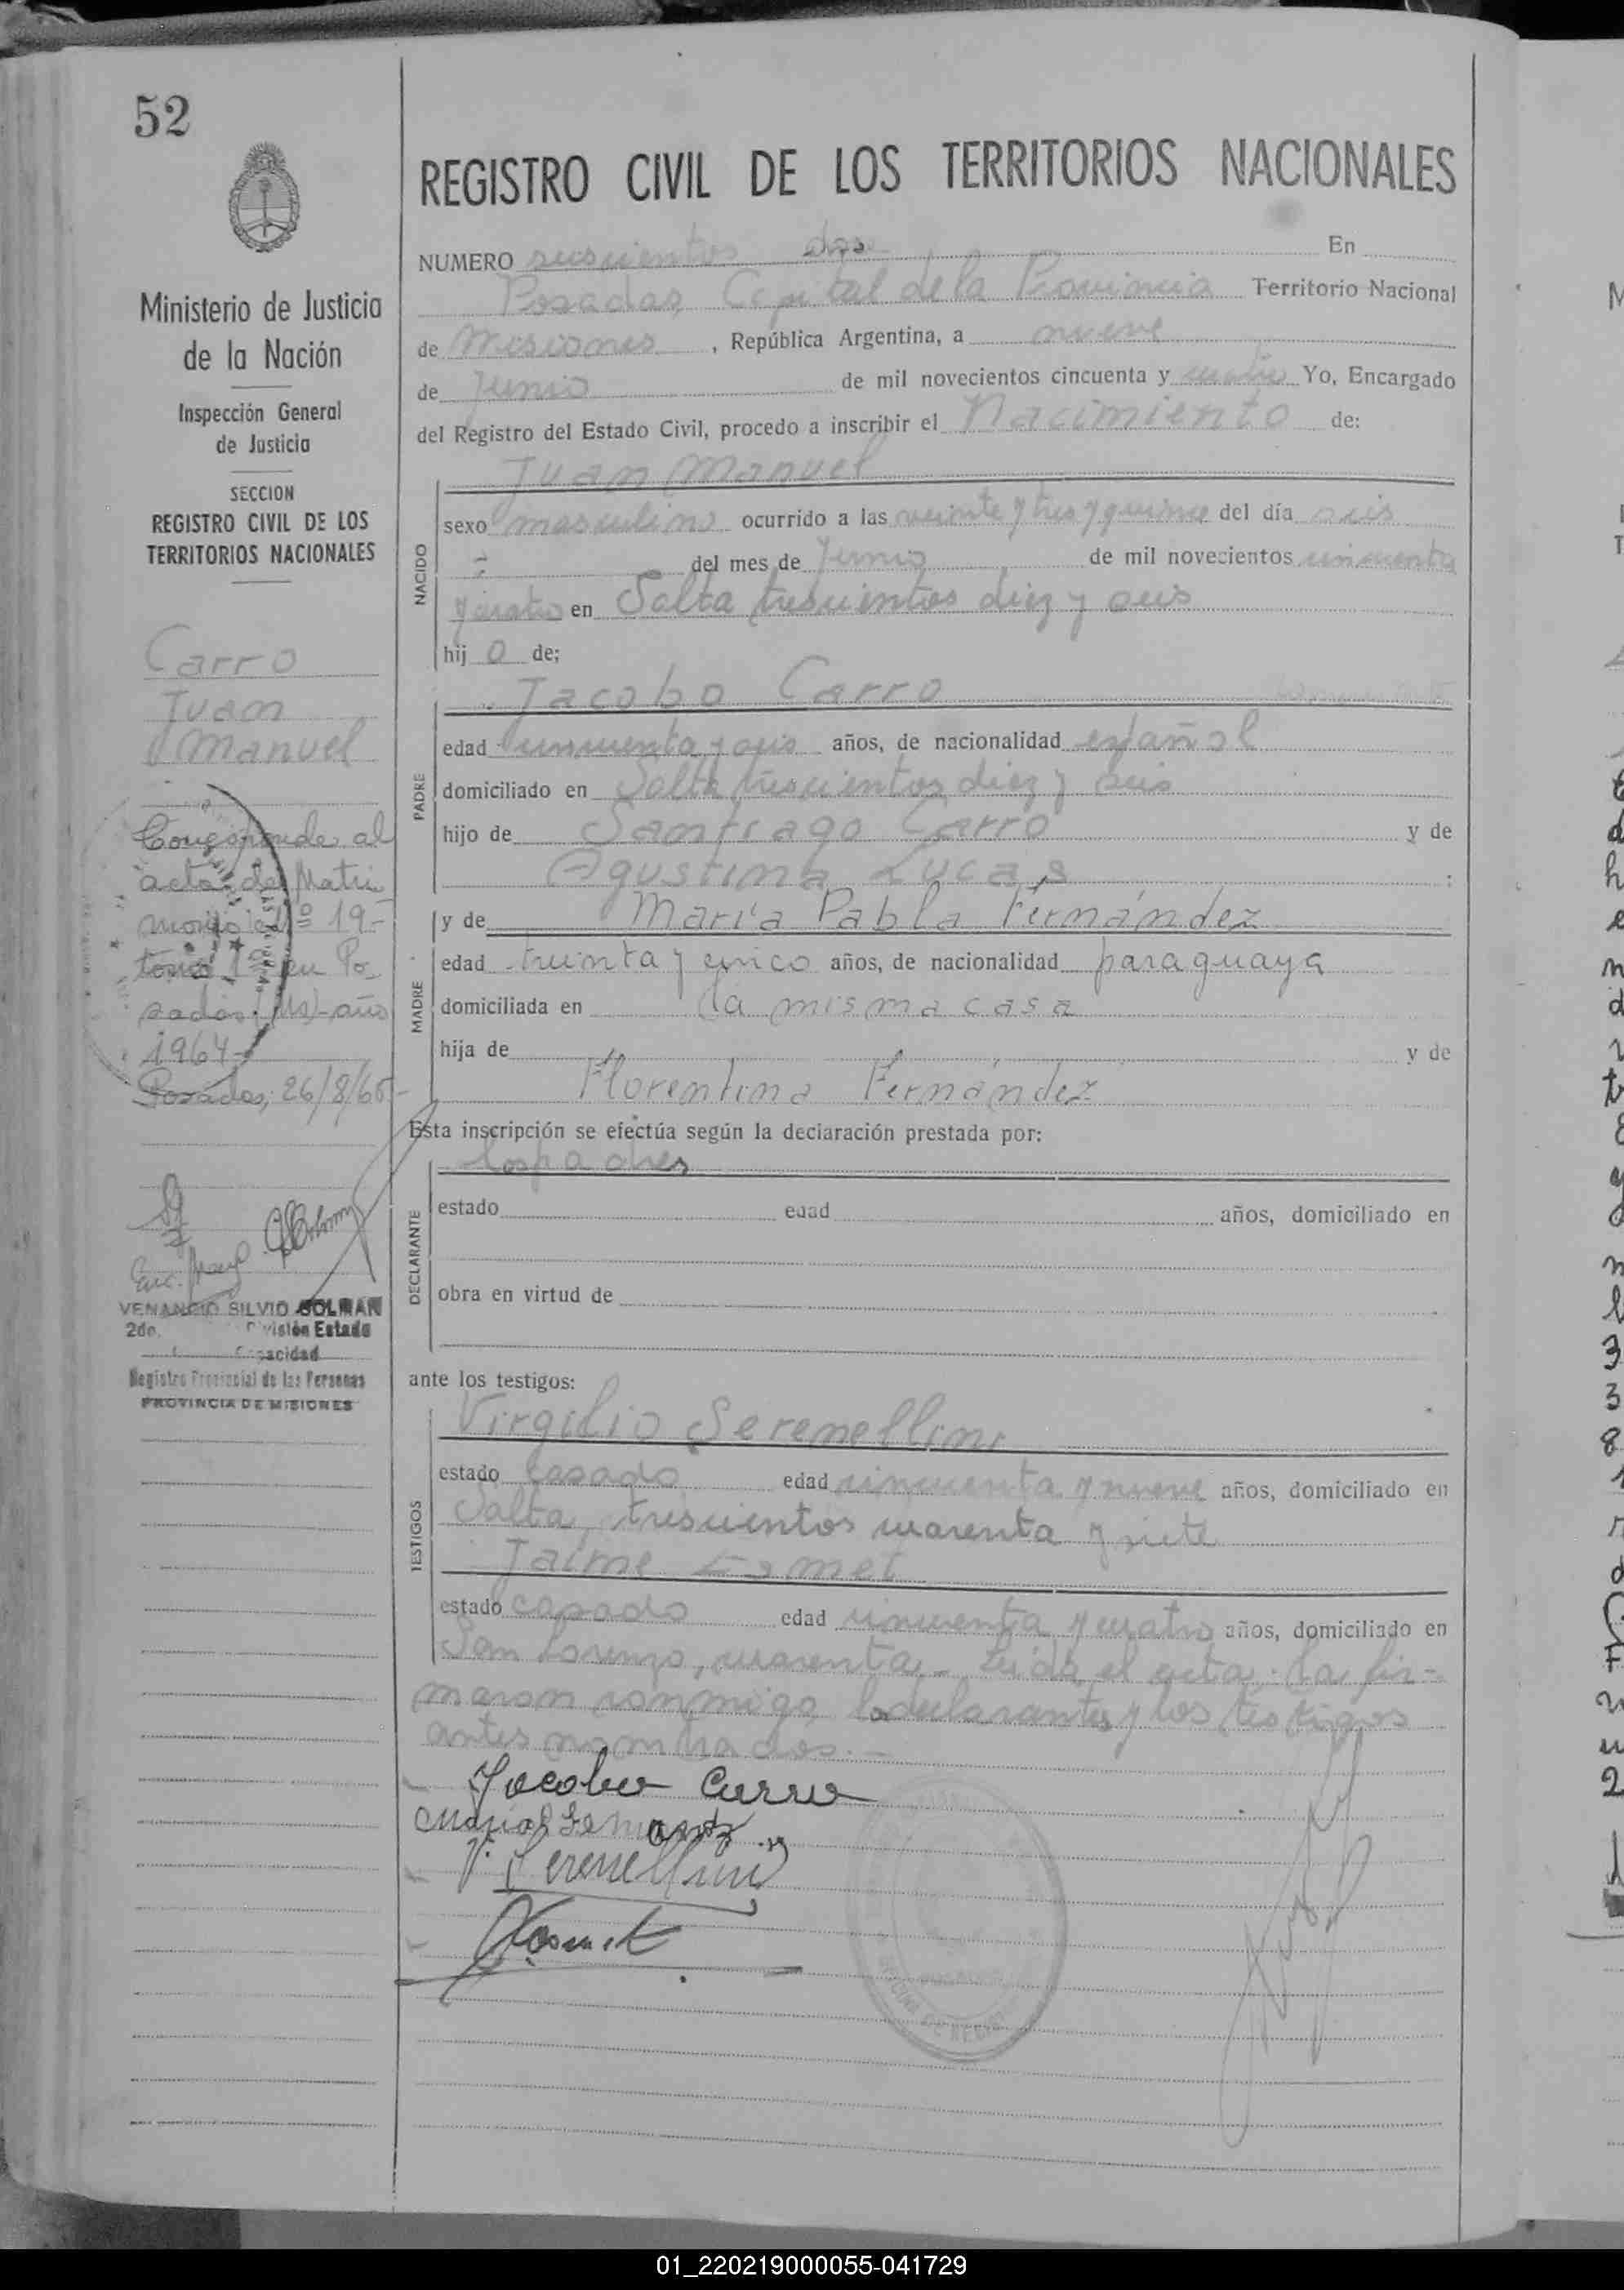 52
Ministerio de Justicia
de la Nación
Inspección General
de Justicia
SECCION
REGISTRO CIVIL DE LOS
TERRITORIOS NACIONALES
Carro
Juan
Manuel
Corresponde al
acta de Matri
monio Nº 19-
tomo 1º en Po
sadas (Ms) año
1964-
Posadas, 26/8/65-
VENANCIO SILVIO GOLMAN
2do. División Estado
Capacidad
Registro Provincial de las Personas
PROVINCIA DE MISIONES
REGISTRO CIVIL DE LOS TERRITORIOS NACIONALES
NUMERO seiscientos dos En
Posadas, Capital de la Provincia Territorio Nacional
de Misiones, República Argentina, a nueve
de Junio de mil novecientos cincuenta y cuatro Yo, Encargado
del Registro del Estado Civil, procedo a inscribir el Nacimiento de:
Juan Manuel
NACIDO
sexo masculino ocurrido a las veinte y tres y quince del día seis
del mes de Junio de mil novecientos cincuenta
y cuatro en Salta trescientos diez y seis
hij o de;
Jacobo Carro
PADRE
edad cincuenta y seis años, de nacionalidad español
domiciliado en Salta trescientos diez y seis
hijo de Santiago Carro y de
Agustina Lucas ;
y de María Pabla Fernández
MADRE
edad treinta y cinco años, de nacionalidad paraguaya
domiciliada en la misma casa
hija de y de
Florentina Fernández
Esta inscripción se efectúa según la declaración prestada por:
los padres
DECLARANTE
estado edad años, domiciliado en
obra en virtud de
ante los testigos:
Virgilio Serenellini
TESTIGOS
estado casado edad cincuenta y nueve años, domiciliado en
Salta, trescientos cuarenta y siete
Jaime Esmet
estado casado edad cincuenta y cuatro años, domiciliado en
San Lorenzo, cuarenta.- Leida el acta la fir-
maron conmigo, los declarantes y los testigos
antes nombrados.-
Jacobo Carro
V. Serenellini
01_220219000055-041729